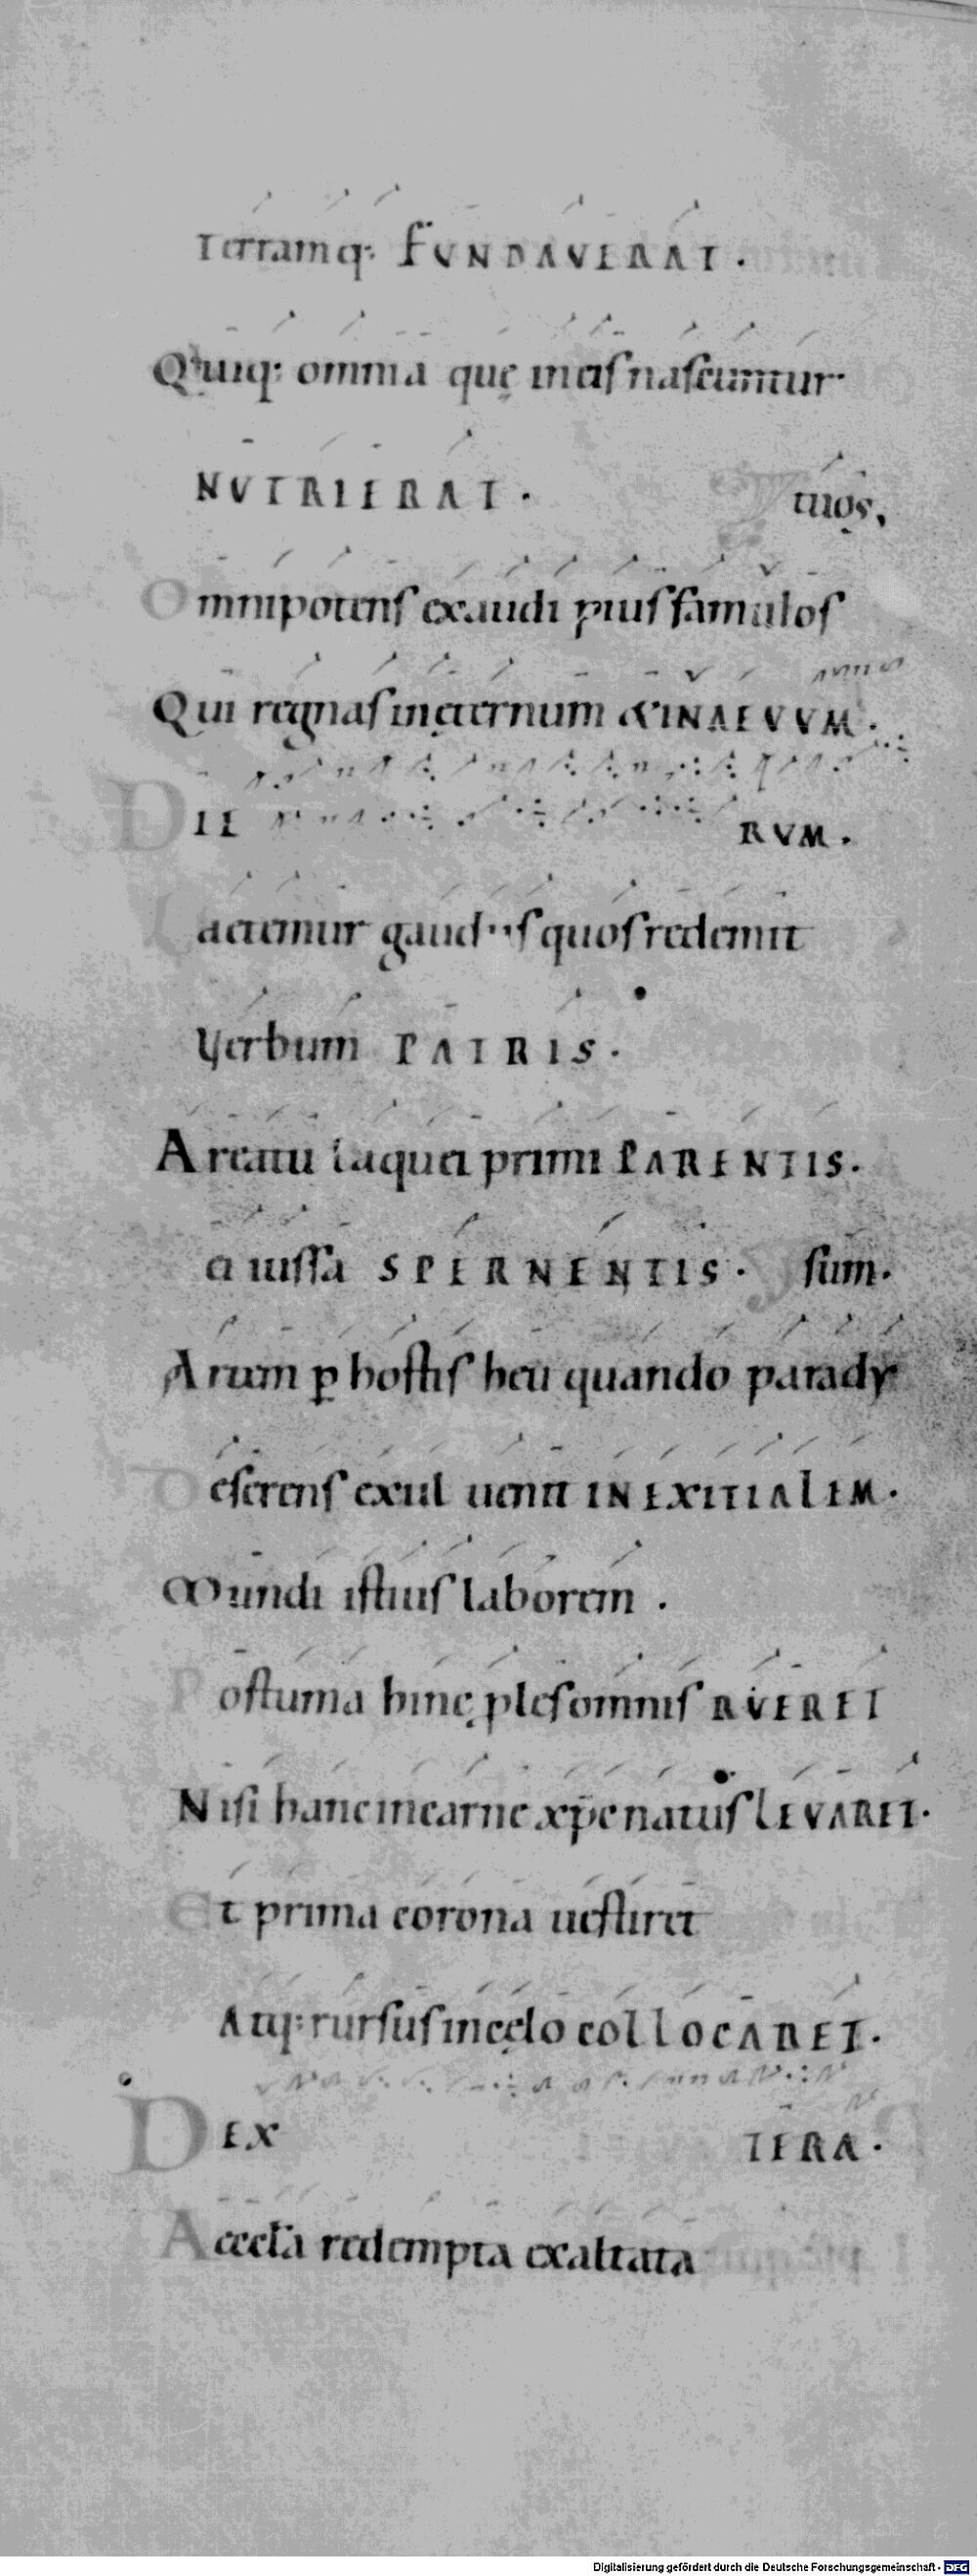 Terramq: FUNDAVERAT.
Quiq: omnia quę in eis nascuntur
NUTRIERAT. tuos,
Omnipotens exaudi pius famulos
Qui regnas in ęternum & IN AEVUM.
DIE RUM.
Laetemur gaudiis quos redemit
Verbum PATRIS.
A reatu laquei primi PARENTIS.
ei iussa SPERNENTIS. sum.
Artem p hostis heu quando parady
Deserens exul uenit IN EXITIALEM.
Mundi istius laborem.
Postuma hinc ꝓles omnis RUERET
Nisi hanc in carne xp̄e natus LEVARET.
Et prima corona uestiret
Atq: rursus in cęlo colLOCARET.
DEX TERA.
Aeccla redempta exaltata
Digitalisierung gefördert durch die Deutsche Forschungsgemeinschaft - DFG